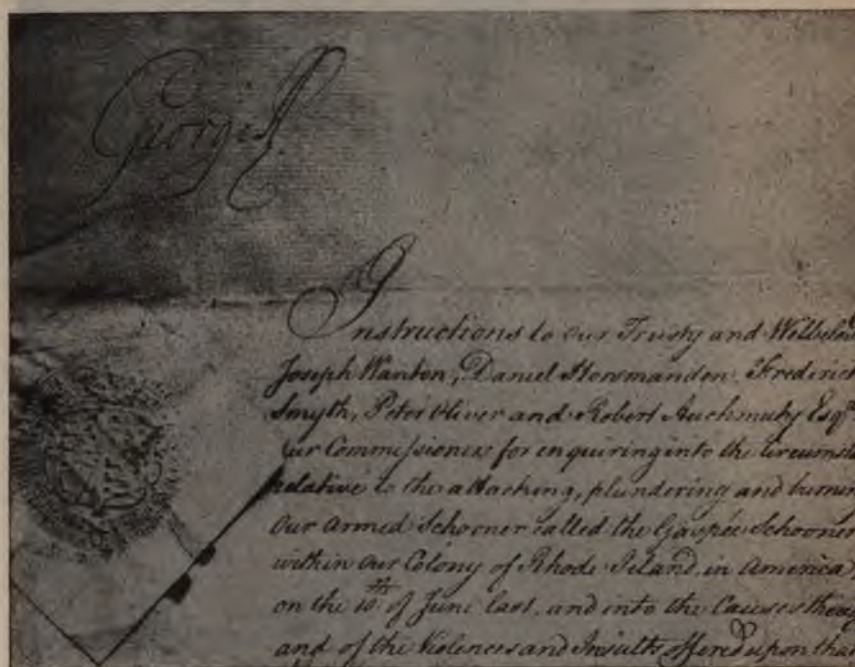 George R
Instructions to Our Trusty and Welbelov
Joseph Wanton, Daniel Horsmanden, Frederick
Smyth, Peter Oliver and Robert Auchmuty Esqrs
Our Commissioners for enquiring into the Circumsta
relative to the attacking, plundering and burning
Our Armed Schooner called the Gaspée Schooner
within Our Colony of Rhode Island, in America,
on the 10th of June last, and into the Causes thereof
and of the Violences and Insults offered upon that